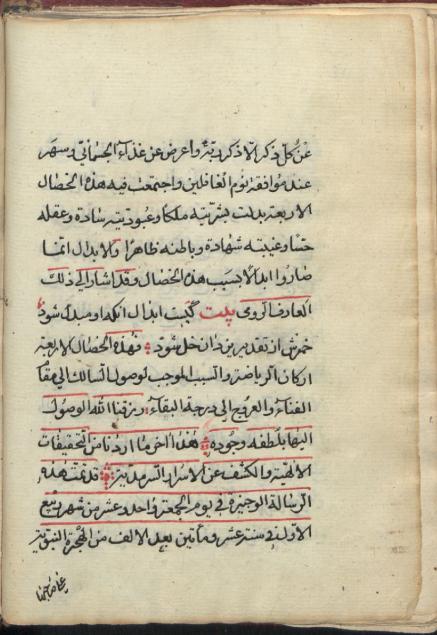 عن كل ذكر الا ذكر ربه واعرض عن غذاء الجسماني وسهر
عند موافقة نوم الغافلين واجتمعت فيه هذه الخصال
الاربعة بدلت بشريته ملكا وعبوديته سادة وعقله
حسا وغيبته شهادة وباطنه ظاهرا والابدال انما
صاروا ابدالا بسبب هذه الخصال وقد اشار الى ذلك
العارف الرومي بيت كيست ابدال انكه او مبدل شود
خمرش از تقدير يزدان خل شود فهذه الخصال الاربعة
اركان الرياضة والسبب الموجب لوصول السالك الى مقام
الفناء والعروج الى درجة البقاء ورزقنا الله الوصول
اليها بلطفه وجوده هذا اخر ما اردنا من التحقيقات
الالهية والكشف عن الاسرار السرمدية قد تمت هذه
الرسالة الوجيزة في يوم الجمعة واحد وعشر من شهر ربيع
الاول في سنة عشر ومأتين بعد الالف من الهجرة النبوية